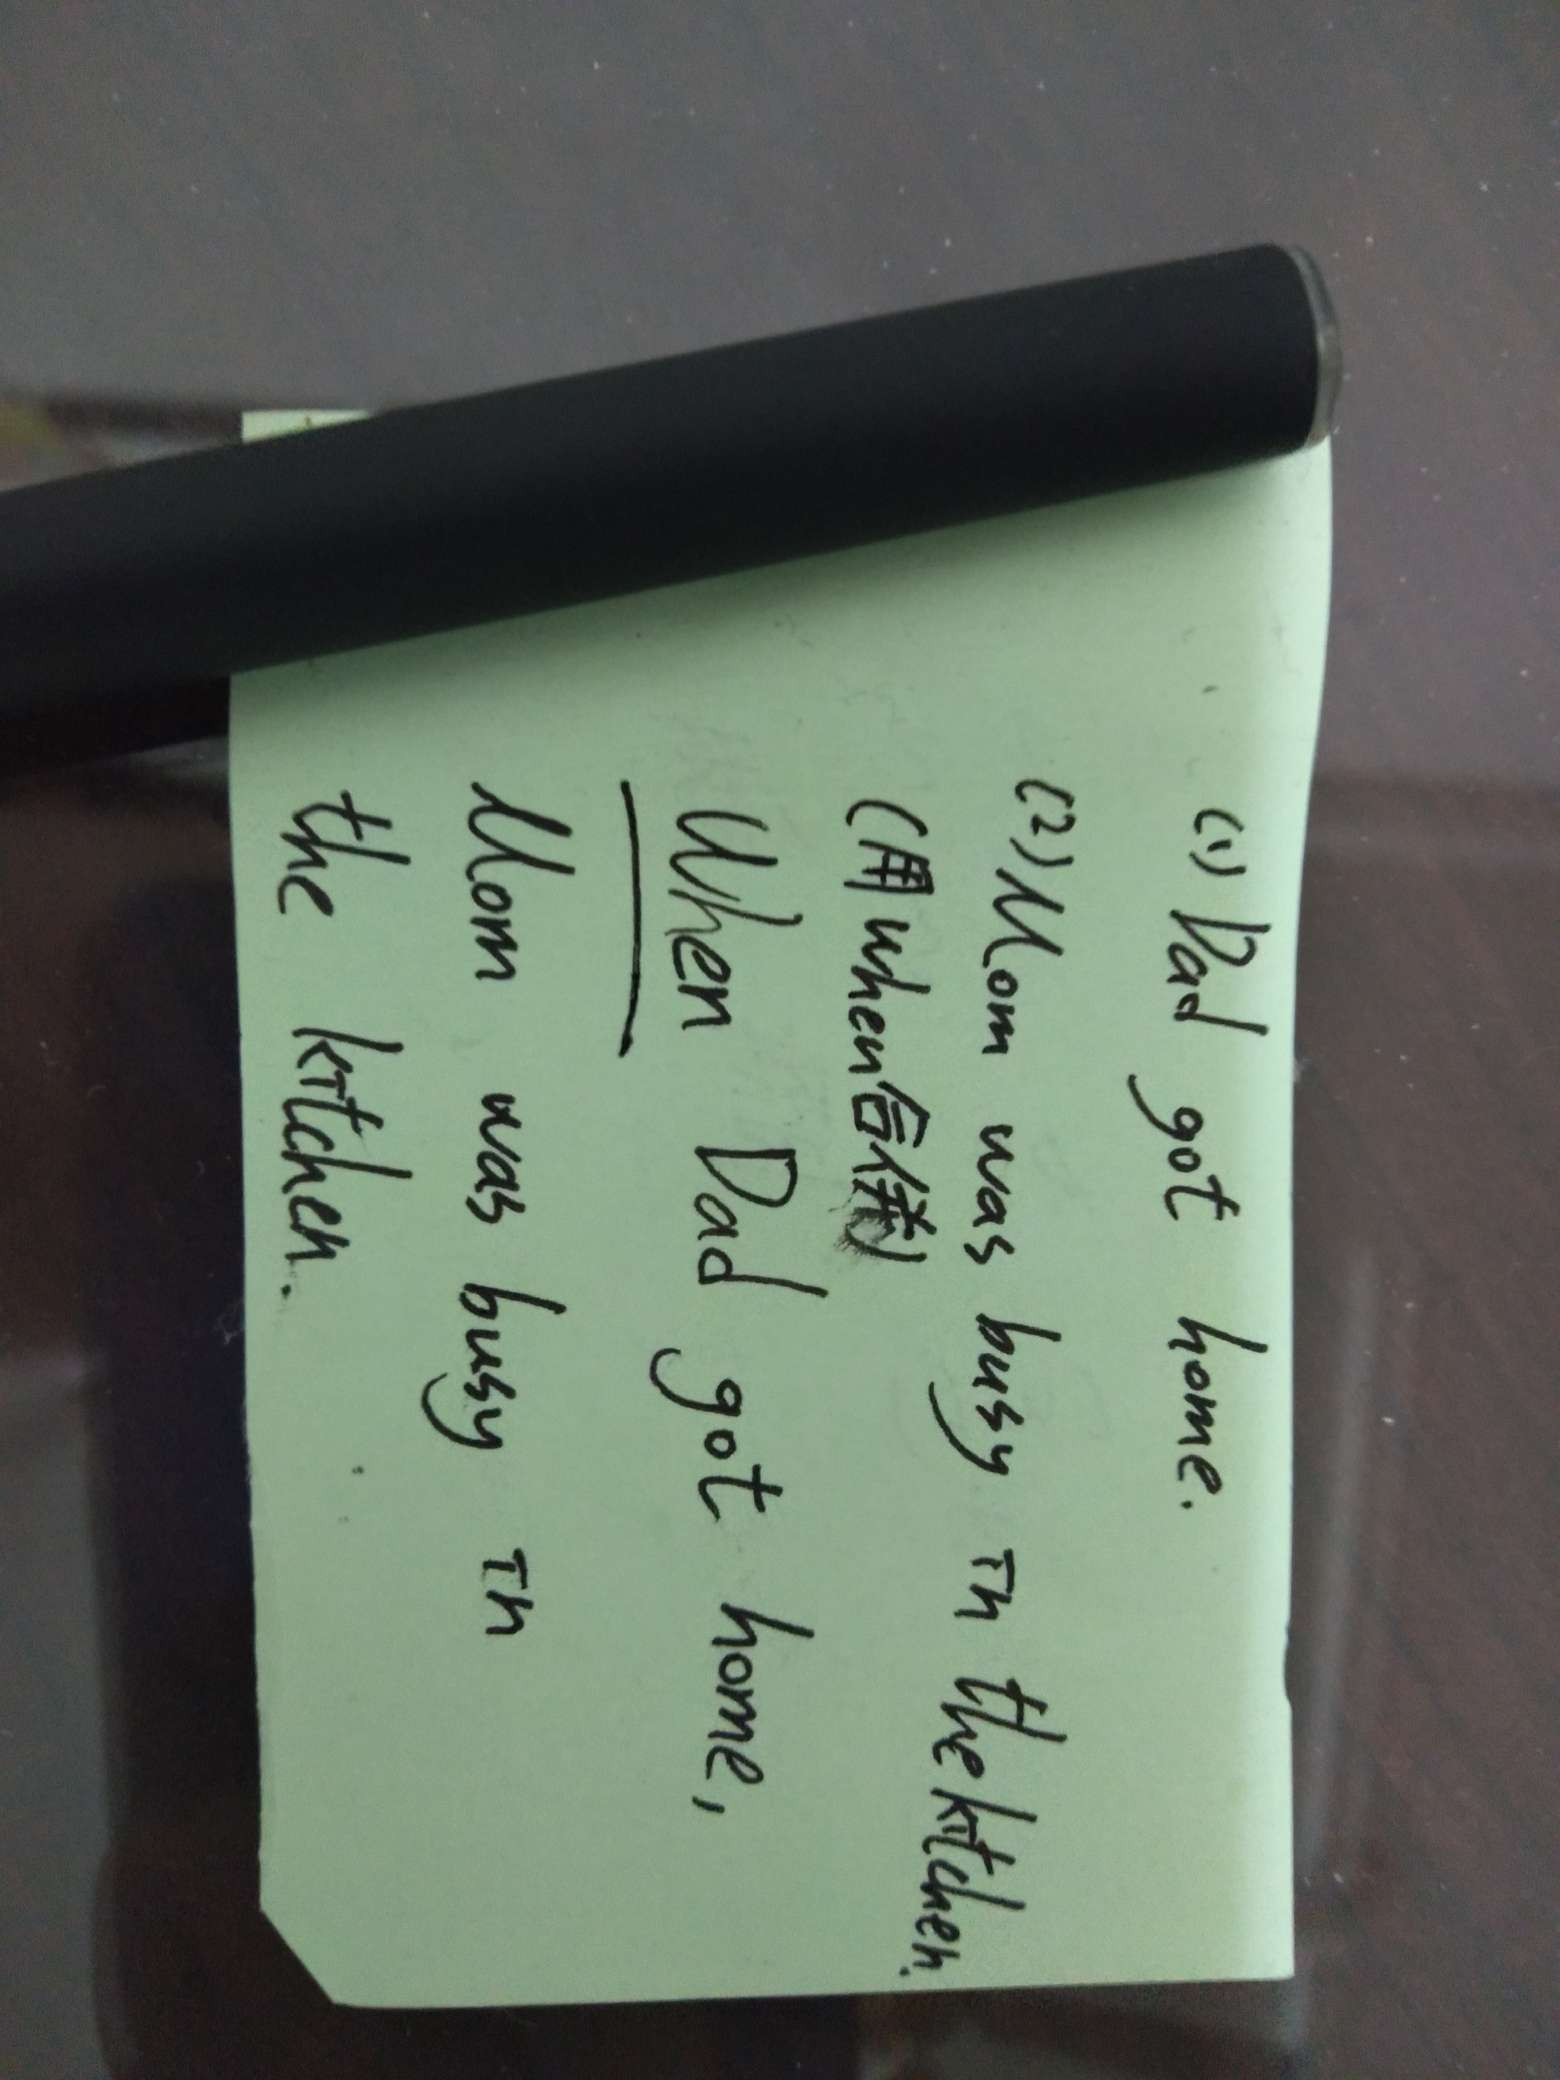 (1) Dad got home.
(2) Mom was busy in the kitchen.
(用when合併)
When Dad got home,
Mom was busy in
the kitchen.